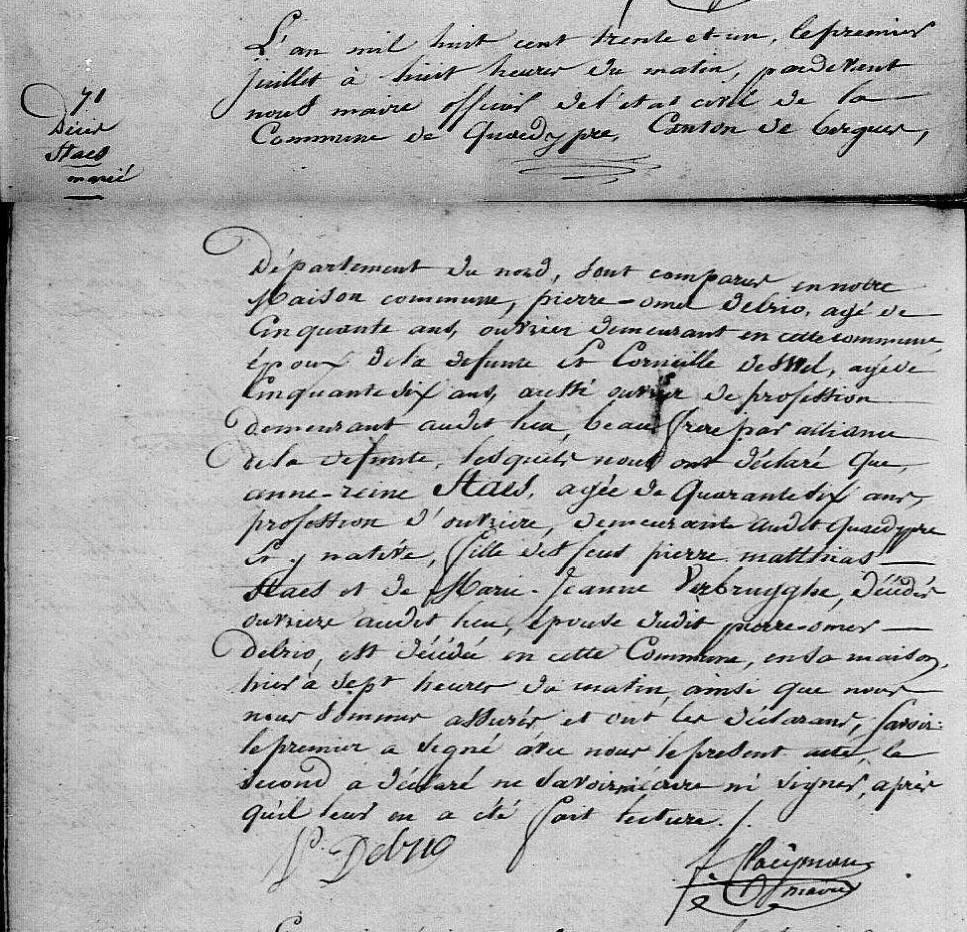 L'an mil huit cent trente et un, le premier
juillet à huit heures du matin, pardevant
nous maire officier de l'etat civil de la
Commune de Quaedypre, Canton de bergues,
71
Décès
Staes
marié
Département du nord, sont comparus en notre
Maison commune, pierre-omer Debrio, agé de
Cinquante ans, ouvrier demeurant en cette commune,
époux de la defunte Et Corneille agé de
Cinquante dix ans, aussi ouvrier de profession
demeurant audit lieu, beau frere par alliance
de la defunte, lesquels nous ont déclaré que,
anne-reine Staes, agée de Quarante dix ans,
profession d'ouvriere, demeurante audit Quaedypre
Et y native, fille des feus pierre matthias
Staes et de Marie-Jeanne Verbrugghe, décédés
ouvriere audit lieu, épouse dudit pierre-omer
Debrio, est décédée en cette Commune, en sa maison,
hier à sept heures du matin, ainsi que nous
nous sommes assurés et ont les déclarans, savoir:
le premier a signé avec nous le present acte, le
second a déclaré ne savoir écrire ni signer, après
qu'il leur en a été fait lecture./.
P. Debrio
maire